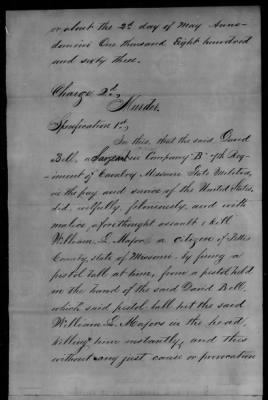 or about the 2d day of May Anno-
domini One thousand Eight hundred
and sixty three.
Charge 2d,
Murder.
Specification 1st,
In this, that the said David
Bell, a Sargeant in Company "B" 7th Reg-
iment of Cavalry Missouri State Militia,
in the pay and service of the United States,
did, wilfully, feloniously, and with
malice aforethought assault & kill
William L. Majors a citizen of Pettis
County, state of Missouri, by firing a
pistol ball at him, from a pistol held
in the hand of the said David Bell,
which said pistol ball hit the said
William L. Majors in the head,
killing him instantly, and this
without any just cause or provocation